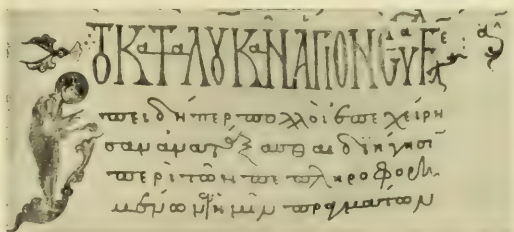 ΤΟ ΚΑΤΑ ΛΟΥΚΑΝ ΑΓΙΟΝ ΕΥΑΓΓΕ
πειδήπερ πολλοὶ ἐπεχείρη
σαν ἀνατάξασθαι διήγησι
περὶ τῶν πεπληροφορη
μένων ἐν ἡμῖν πραγμάτων